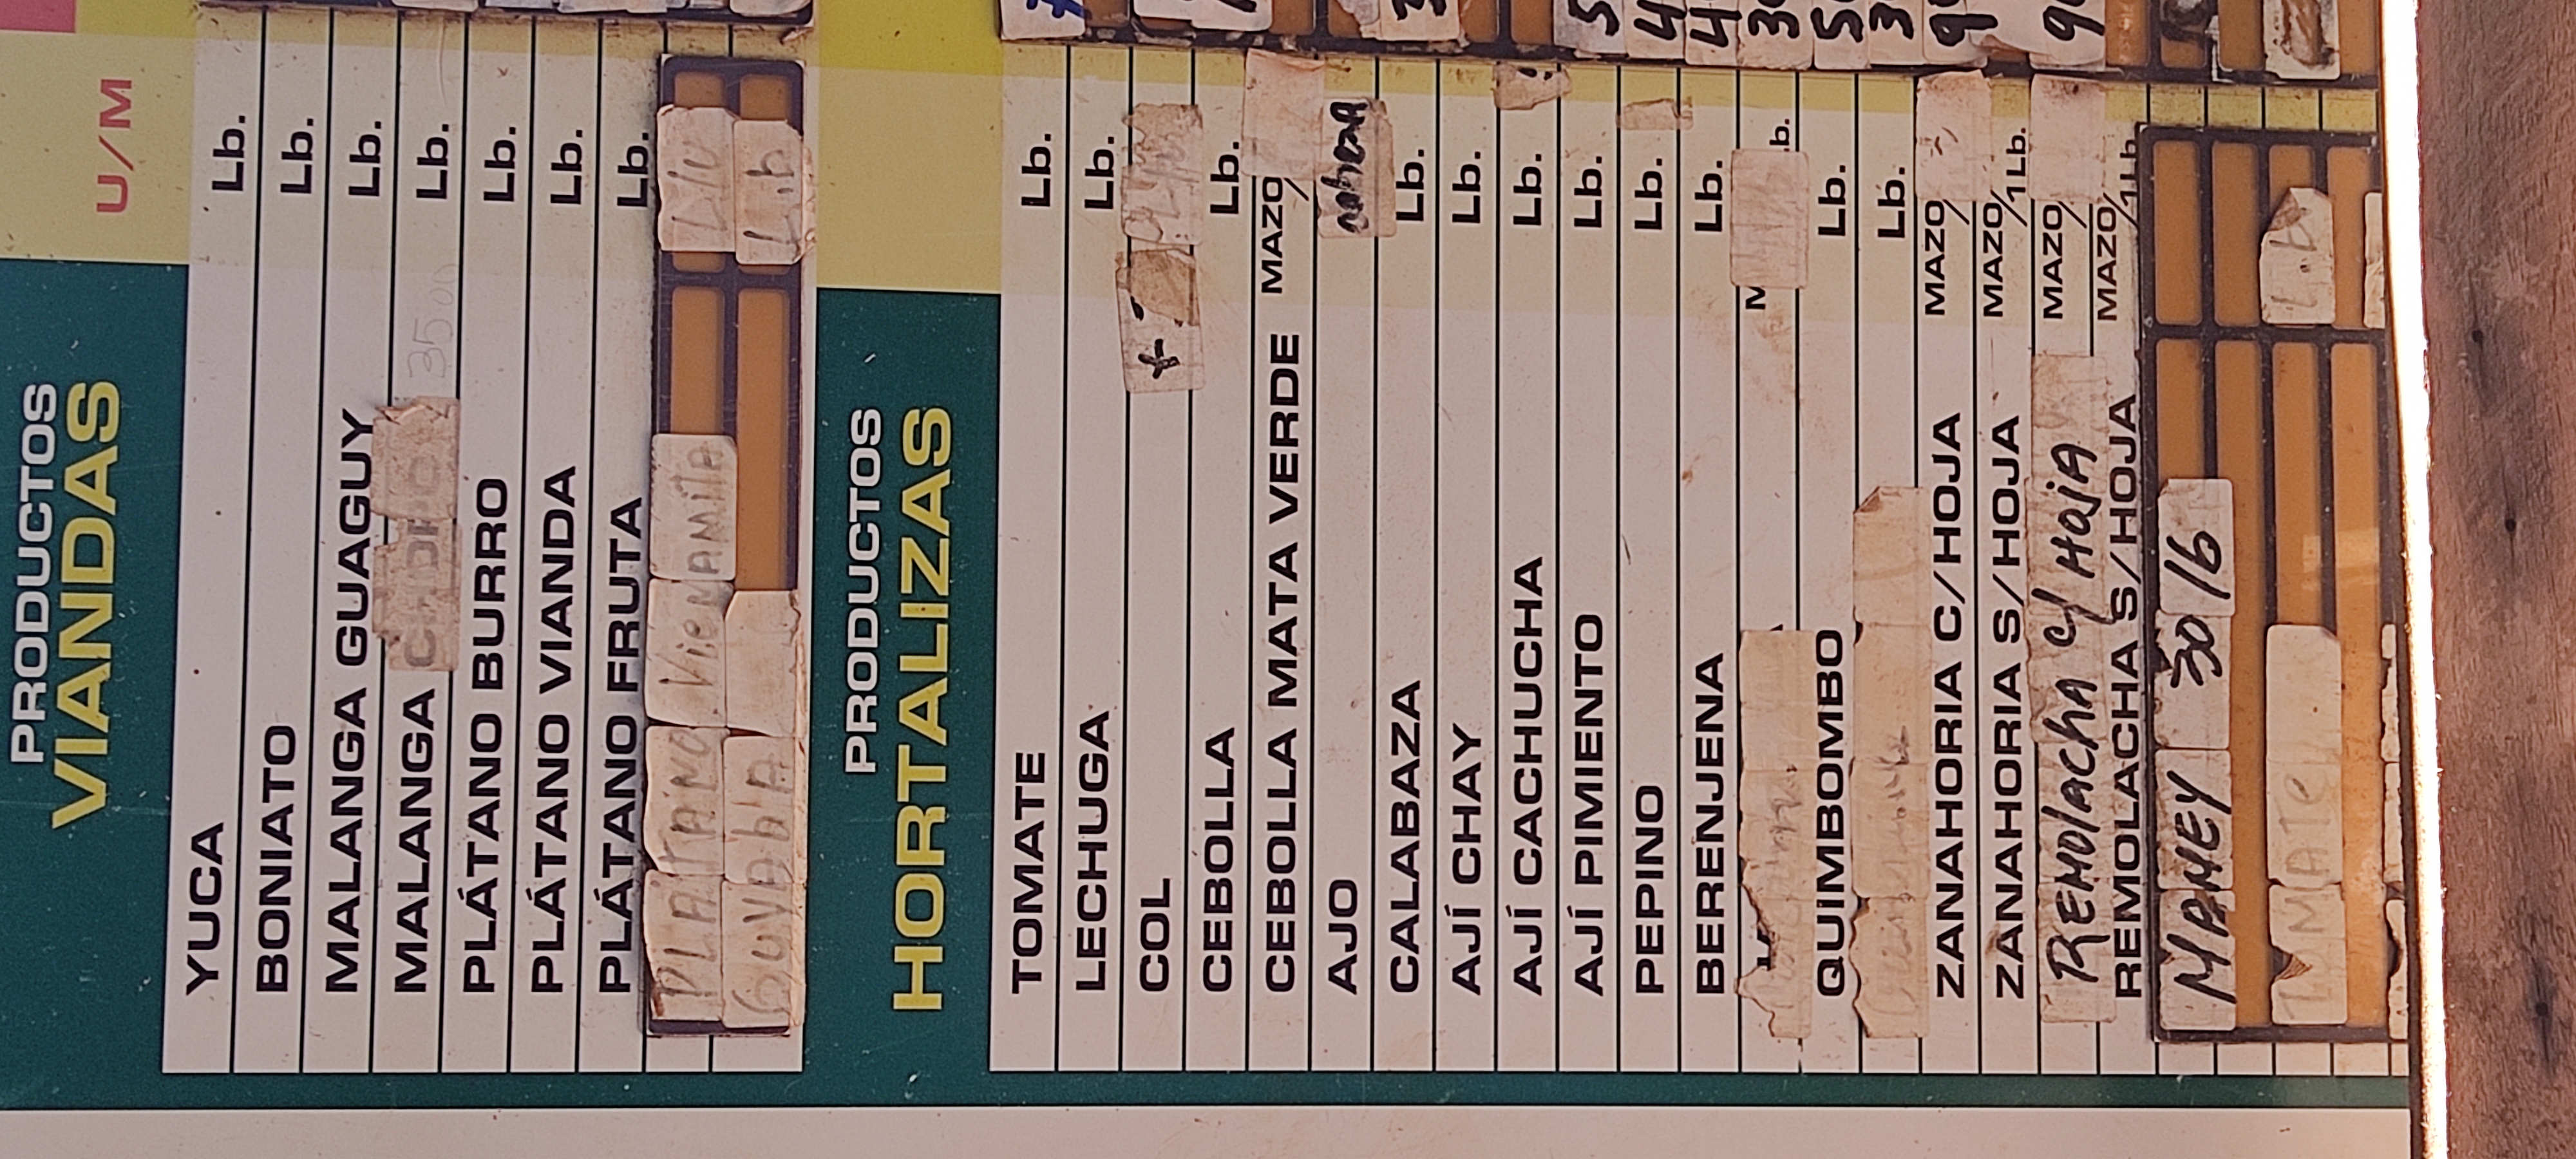 PRODUCTOS
VIANDAS
U/M
YUCA Lb.
BONIATO Lb.
MALANGA GUAGUY Lb.
MALANGA CHOPO 35.00 Lb.
PLÁTANO BURRO Lb.
PLÁTANO VIANDA Lb.
PLÁTANO FRUTA Lb.
PLATANO VieNAMITA L/U
GUYAbA L.b
PRODUCTOS
HORTALIZAS
TOMATE Lb.
LECHUGA Lb.
COL +
CEBOLLA Lb.
CEBOLLA MATA VERDE MAZO/
AJO cabezA
CALABAZA Lb. 3
AJÍ CHAY Lb.
AJÍ CACHUCHA Lb.
AJÍ PIMIENTO Lb. 5
PEPINO Lb. 4
BERENJENA Lb. 4
M b. 30
QUIMBOMBO Lb. 5
Lb. 3
ZANAHORIA C/HOJA MAZO/ 9
ZANAHORIA S/HOJA MAZO/1Lb.
REMOlAChA C/ HOjA MAZO/ 9
REMOLACHA S/HOJA MAZO/1Lb
MAMEY 30 16
TOMATe L.b